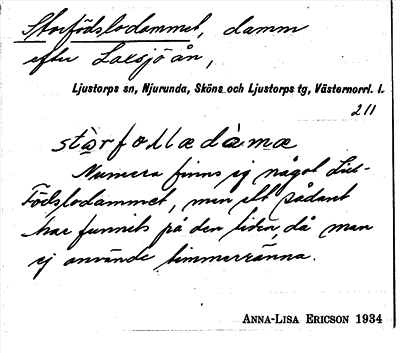 Storfödslodammet, damm
efter Laxsjöån,
Ljustorps sn, Njurunda, Sköns och Ljustorps tg, Västernorrl. l.
211
Numera finns ej något
Födslodammet, men ett sådant
har funnits på den tiden, då man
ej använde timmerränna.
ANNA-LISA ERICSON 1934